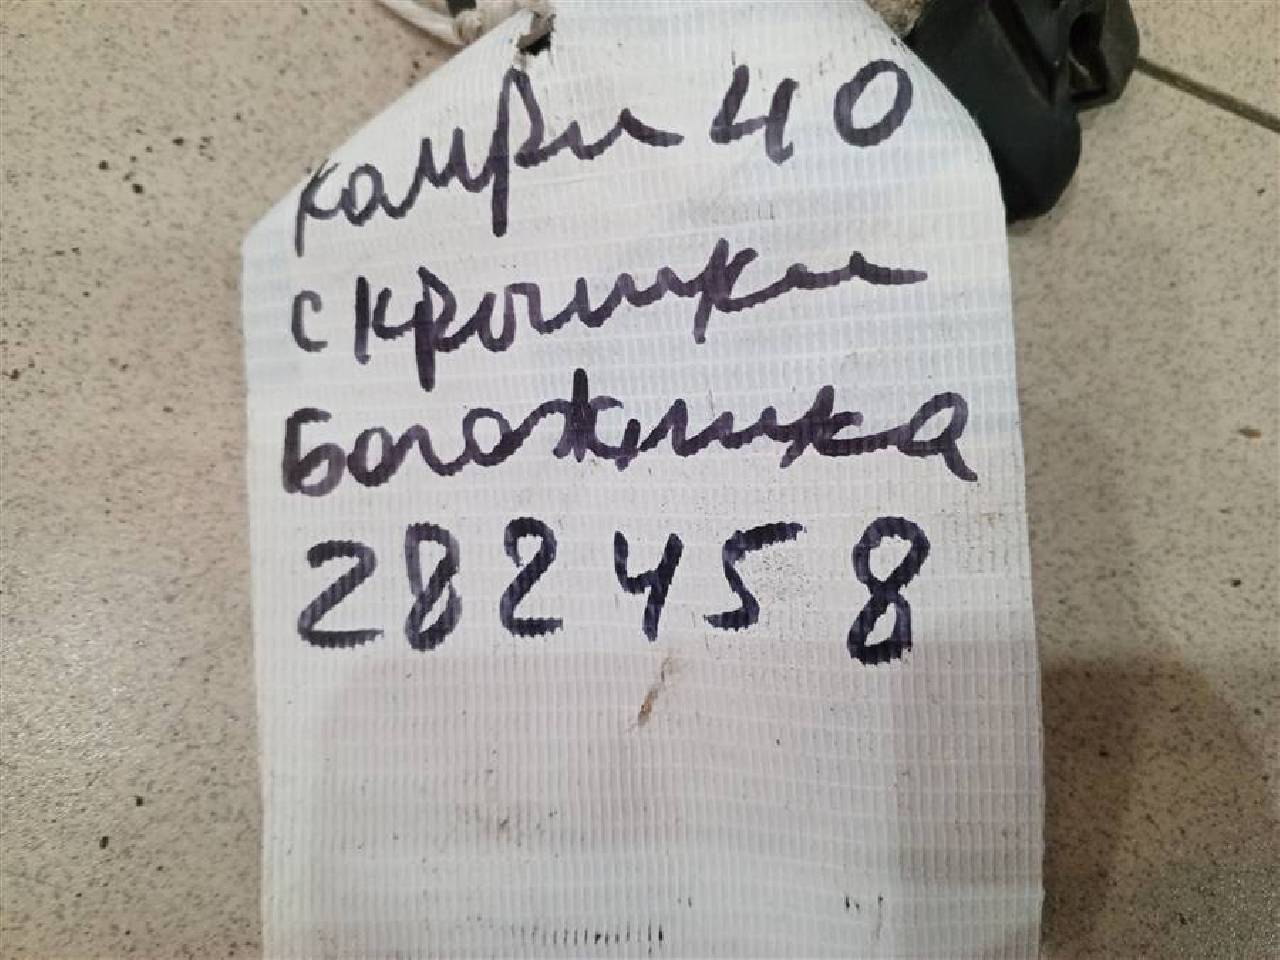 камри 40
с крышки
Богожника
282458